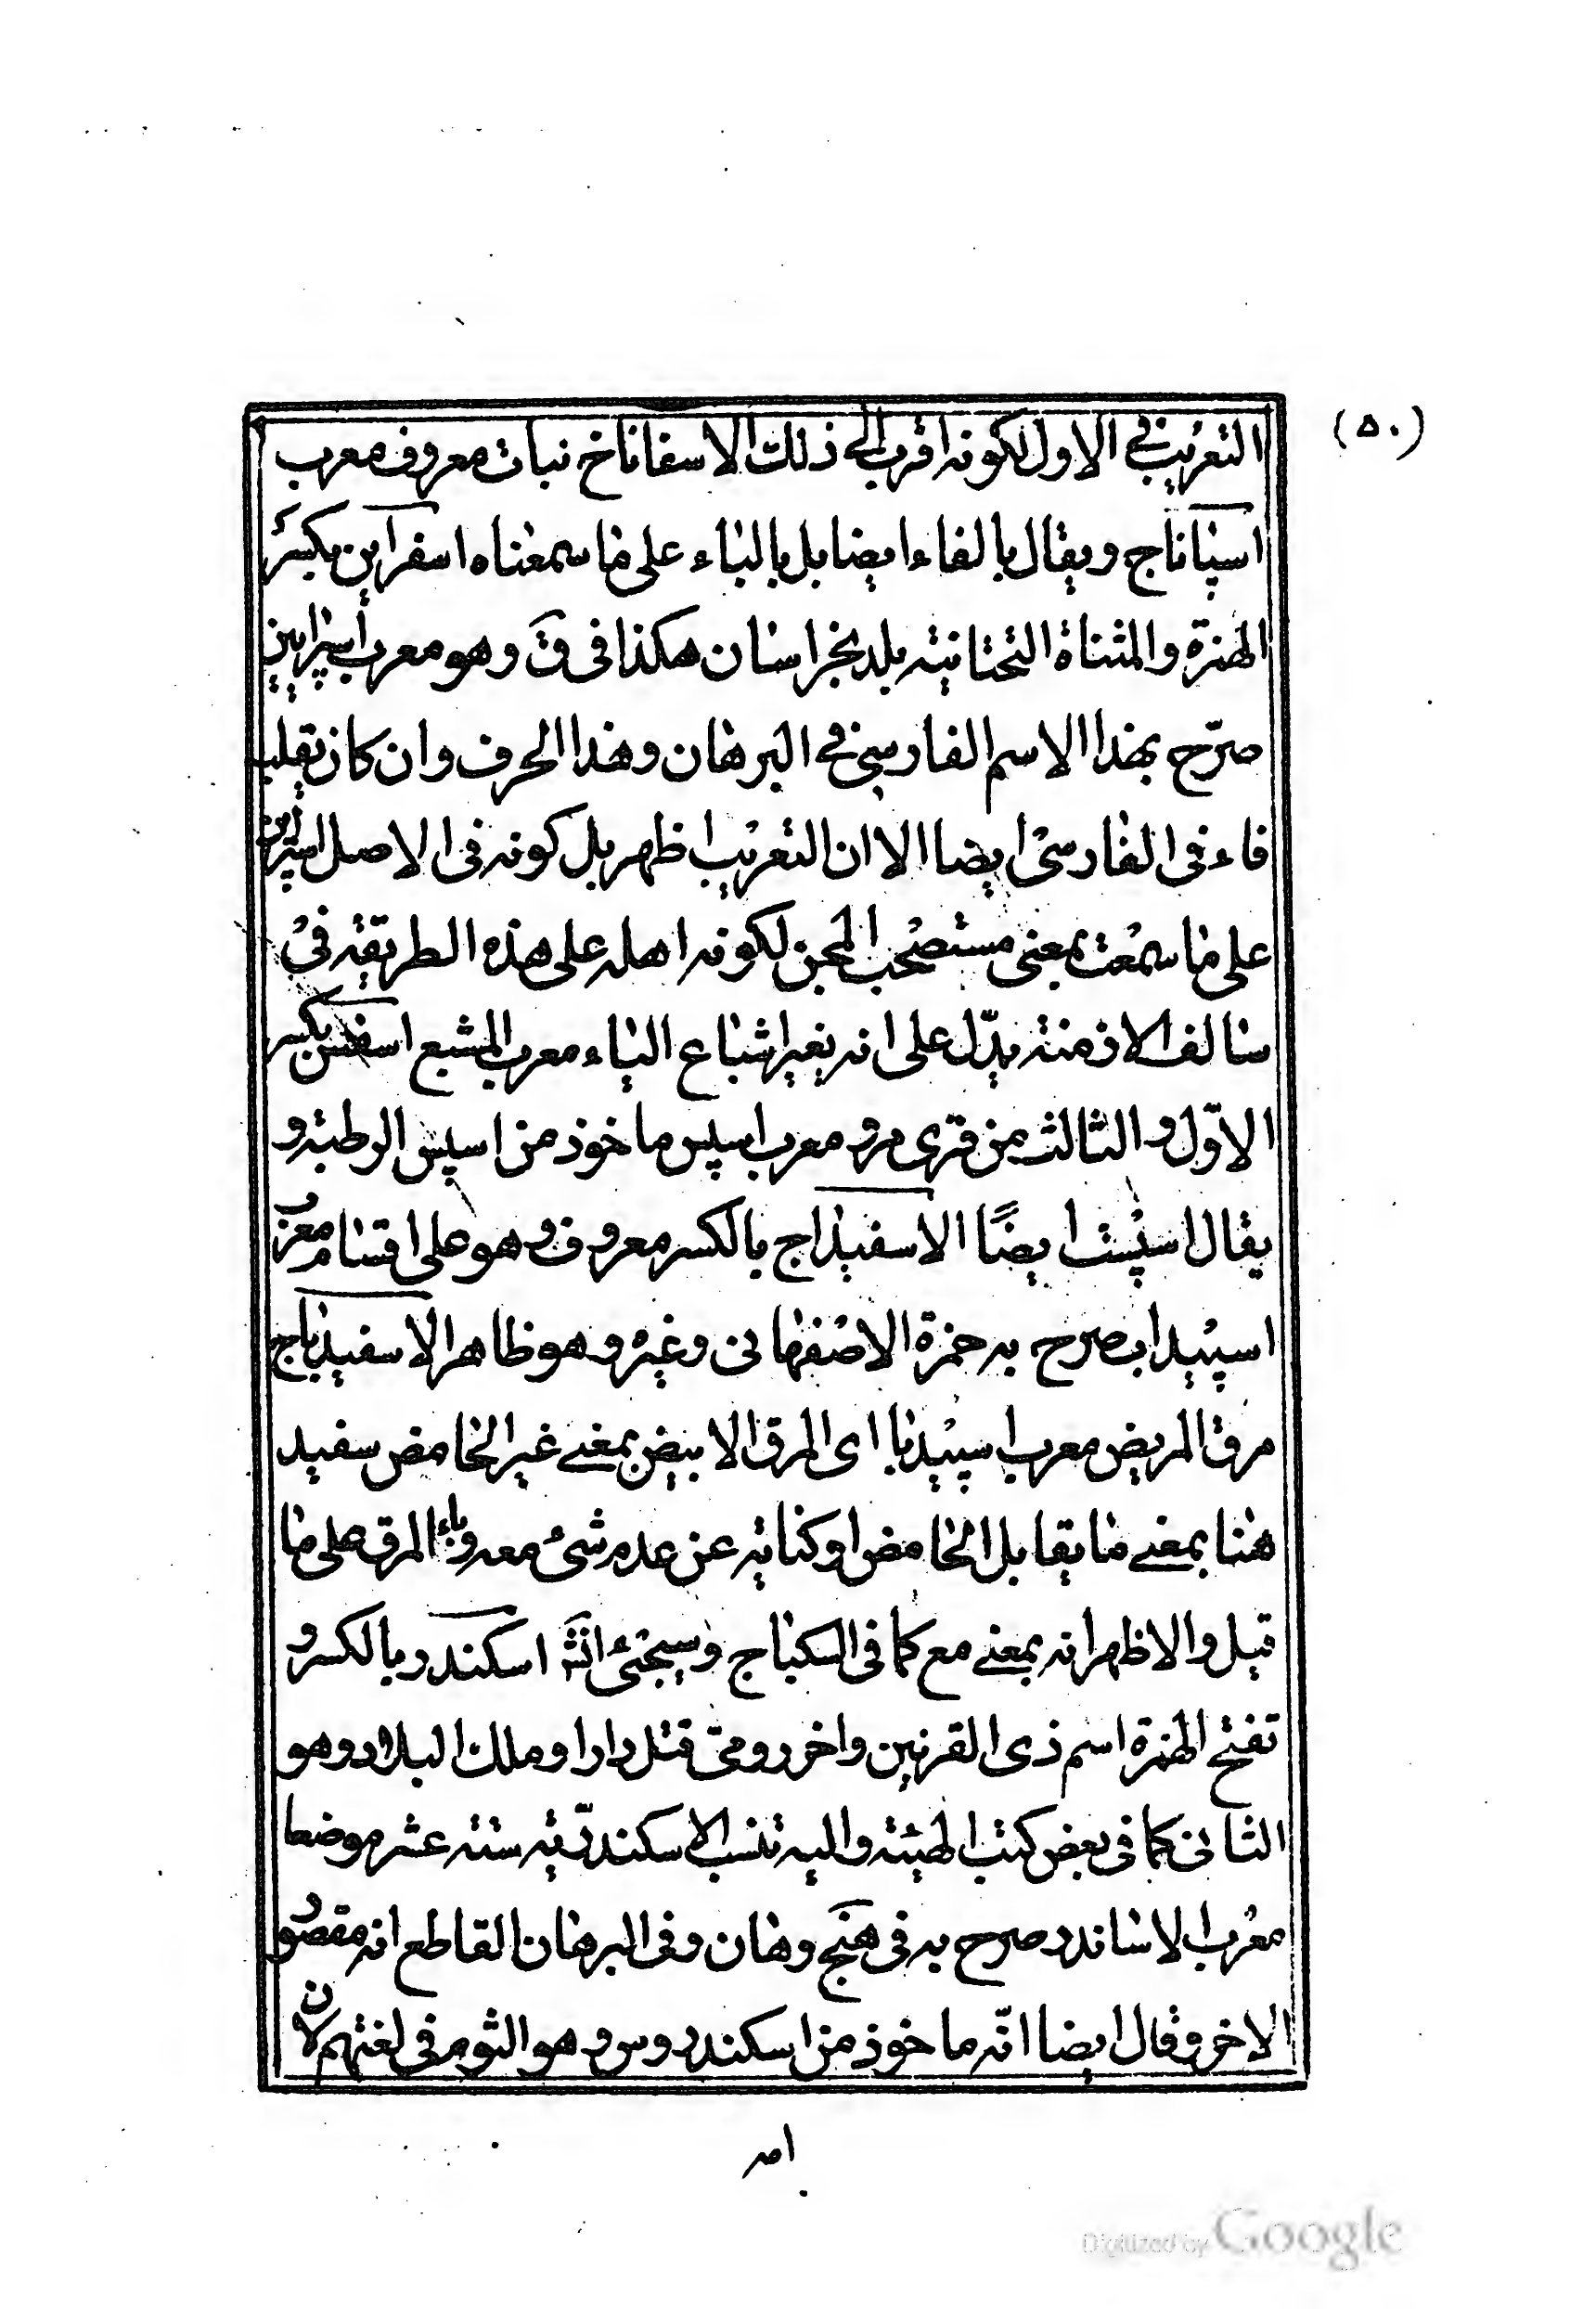 (٥٠)
التعريب في الاول لكونه اقرب الى ذلك الاسفاناخ نبات معروف معرب
اسپاناج ويقال بالفاء ايضا بل بالباء على ما سمعناه اسفراين بكسر
الهمزة والمثناة التحتانية بلد بخراسان هكذا في ق وهو معرب اسپرايين
صرّح بهذا الاسم الفارسي في البرهان وهذا الحرف وان كان تقلب
فاء في الفارسي ايضا الا ان التعريب اظهر بل كونه في الاصل اسپراين
على ما سمعت بمعنى مستصحب المجن لكونه اهله على هذه الطريقة في
سالف الازمنة يدّل على انه بغير اشباع الياء معرب المشبع اسفس بكسر
الاوّل والثالث من قرى مرو معرب اسپس ماخوذ من اسپس الرطبة و
يقال اسپست ايضًا الاسفيداج بالكسر معروف وهو على اقسام معرب
اسپيداب صرح به حمزة الاصفهاني وغيره وهو ظاهر الاسفيدباج
مرق المريض معرب اسپيدبا اى المرق الابيض بمعنى غير الحامض سفيد
هنا بمعنى ما يقابل الحامض او كناية عن عدم شئ معه وباء المرق على ما
قيل والاظهر انه بمعنى مع كما في السكباج وسيجئ انش اسكندر بالكسر و
تفتح الهمزة اسم ذى القرنين واخر رومي قتل دارا وملك البلاد وهو
الثاني كما في بعض كتب الهيئة واليه تنسب الاسكندريّة ستة عشر موضعا
معرب الاساندر صرح به في هنج وهان وفي البرهان القاطع انه مقصور
الاخر وقال ايضا انّه ماخوذ من اسكندروس وهو الثوم في لغتهم لان
امه
Digitized by Google